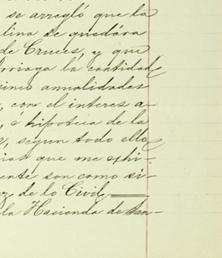 se arregló que la
lina se quedára
de Cruces, y que
rriaga la cantidad
cinco annalidades
, con el interes a
, é hipoteca de la
e, segun todo ello
cias que me exhi-
ente son como si-
de lo Civil,
la Hacienda de San-